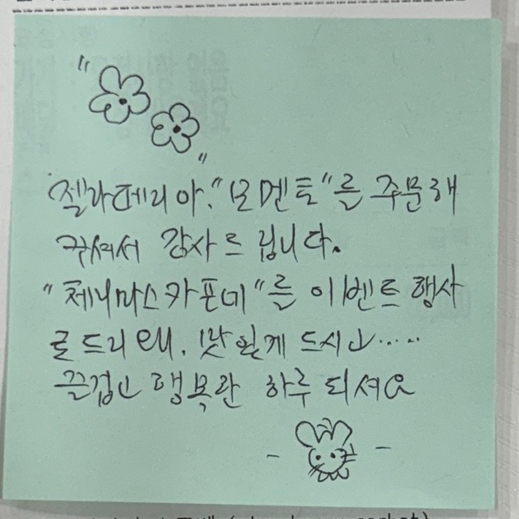 젤라떼리아. "모멘토"를 주문해
주셔서 감사드립니다.
"체니마스카포네"를 이벤트 행사
로 드리며, 맛있게 드시고.....
즐겁고 행복한 하루 되셔요